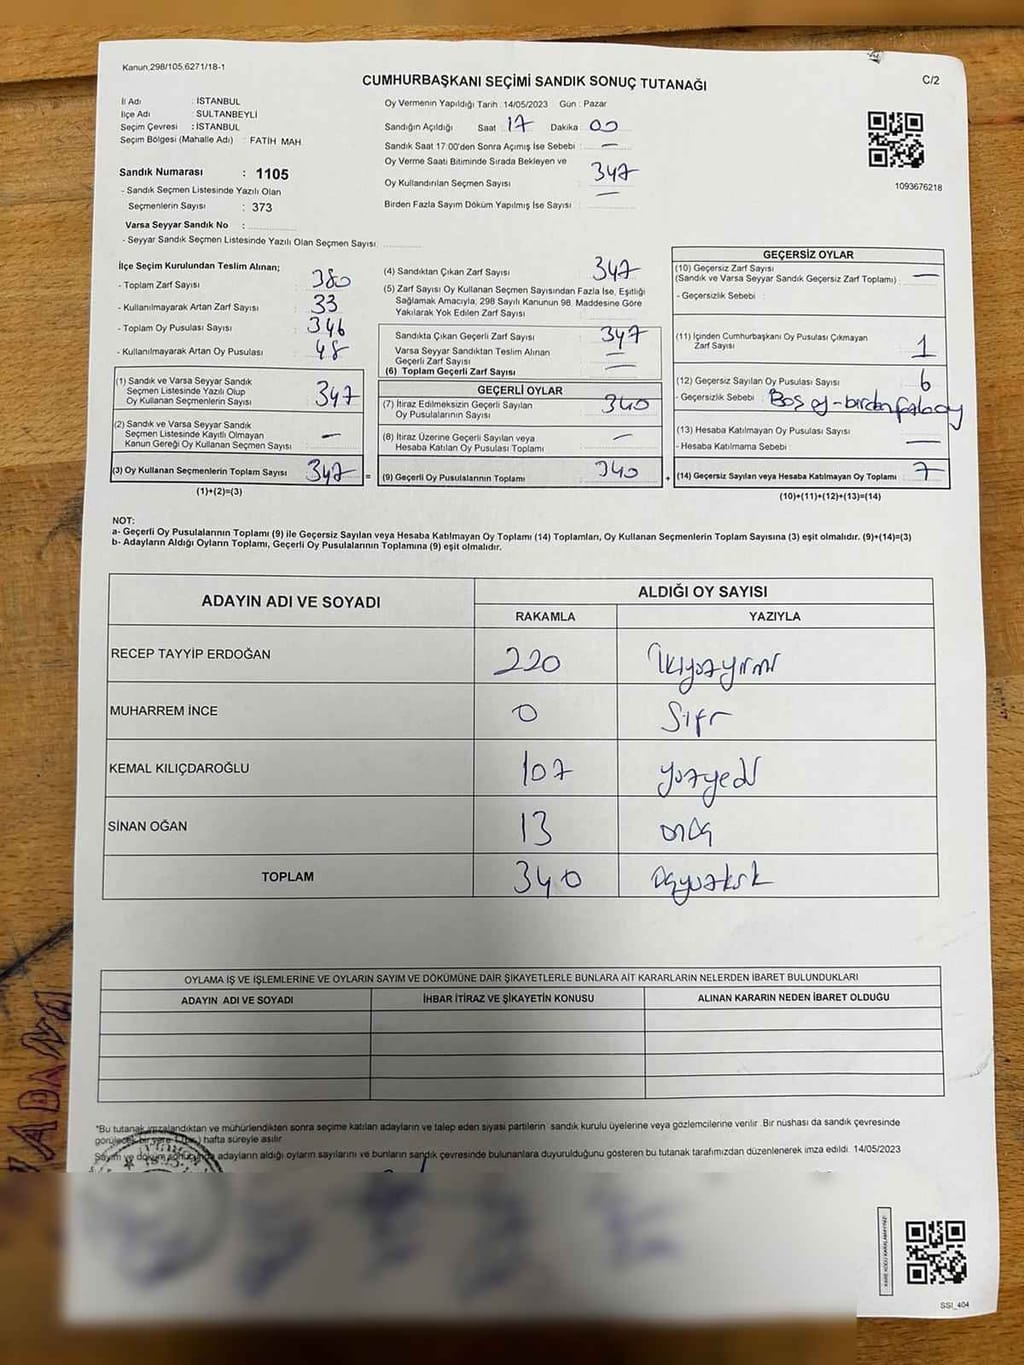 Kanun,298/105,6271/18-1
CUMHURBAŞKANI SEÇİMİ SANDIK SONUÇ TUTANAĞI
C/2
İl Adı : İSTANBUL
İlçe Adı : SULTANBEYLİ
Seçim Çevresi : İSTANBUL
Seçim Bölgesi (Mahalle Adı) : FATİH MAH
Sandık Numarası : 1105
- Sandık Seçmen Listesinde Yazılı Olan
Seçmenlerin Sayısı : 373
Varsa Seyyar Sandık No :
- Seyyar Sandık Seçmen Listesinde Yazılı Olan Seçmen Sayısı:
Oy Vermenin Yapıldığı Tarih : 14/05/2023 Gün : Pazar
Sandığın Açıldığı Saat 17 Dakika 00
Sandık Saat 17:00'den Sonra Açımış İse Sebebi : —
Oy Verme Saati Bitiminde Sırada Bekleyen ve
Oy Kullandırılan Seçmen Sayısı : 347
Birden Fazla Sayım Döküm Yapılmış İse Sayısı : —
1093676218
İlçe Seçim Kurulundan Teslim Alınan;
- Toplam Zarf Sayısı : 380
- Kullanılmayarak Artan Zarf Sayısı : 33
- Toplam Oy Pusulası Sayısı : 346
- Kullanılmayarak Artan Oy Pusulası : 48
(1) Sandık ve Varsa Seyyar Sandık
Seçmen Listesinde Yazılı Olup
Oy Kullanan Seçmenlerin Sayısı : 347
(2) Sandık ve Varsa Seyyar Sandık
Seçmen Listesinde Kayıtlı Olmayan
Kanun Gereği Oy Kullanan Seçmen Sayısı : —
(3) Oy Kullanan Seçmenlerin Toplam Sayısı : 347 =
(1)+(2)=(3)
(4) Sandıktan Çıkan Zarf Sayısı : 347
(5) Zarf Sayısı Oy Kullanan Seçmen Sayısından Fazla İse, Eşitliği
Sağlamak Amacıyla, 298 Sayılı Kanunun 98. Maddesine Göre
Yakılarak Yok Edilen Zarf Sayısı :
Sandıkta Çıkan Geçerli Zarf Sayısı : 347
Varsa Seyyar Sandıktan Teslim Alınan
Geçerli Zarf Sayısı : —
(6) Toplam Geçerli Zarf Sayısı : —
GEÇERLİ OYLAR
(7) İtiraz Edilmeksizin Geçerli Sayılan
Oy Pusulalarının Sayısı : 340
(8) İtiraz Üzerine Geçerli Sayılan veya
Hesaba Katılan Oy Pusulası Toplamı : —
(9) Geçerli Oy Pusulalarının Toplamı : 340 +
GEÇERSİZ OYLAR
(10) Geçersiz Zarf Sayısı
(Sandık ve Varsa Seyyar Sandık Geçersiz Zarf Toplamı) : —
- Geçersizlik Sebebi :
(11) İçinden Cumhurbaşkanı Oy Pusulası Çıkmayan
Zarf Sayısı : 1
(12) Geçersiz Sayılan Oy Pusulası Sayısı : 6
- Geçersizlik Sebebi : Boş oy - birden fazla oy
(13) Hesaba Katılmayan Oy Pusulası Sayısı : —
- Hesaba Katılmama Sebebi :
(14) Geçersiz Sayılan veya Hesaba Katılmayan Oy Toplamı : 7
(10)+(11)+(12)+(13)=(14)
NOT:
a- Geçerli Oy Pusulalarının Toplamı (9) ile Geçersiz Sayılan veya Hesaba Katılmayan Oy Toplamı (14) Toplamları, Oy Kullanan Seçmenlerin Toplam Sayısına (3) eşit olmalıdır. (9)+(14)=(3)
b- Adayların Aldığı Oyların Toplamı, Geçerli Oy Pusulalarının Toplamına (9) eşit olmalıdır.
ADAYIN ADI VE SOYADI
ALDIĞI OY SAYISI
RAKAMLA YAZIYLA
RECEP TAYYİP ERDOĞAN 220 İkiyüzyirmi
MUHARREM İNCE 0 Sıfır
KEMAL KILIÇDAROĞLU 107 yüzyedi
SİNAN OĞAN 13 onüç
TOPLAM 340 üçyüzkırk
OYLAMA İŞ VE İŞLEMLERİNE VE OYLARIN SAYIM VE DÖKÜMÜNE DAİR ŞİKAYETLERLE BUNLARA AİT KARARLARIN NELERDEN İBARET BULUNDUKLARI
ADAYIN ADI VE SOYADI İHBAR İTİRAZ VE ŞİKAYETİN KONUSU ALINAN KARARIN NEDEN İBARET OLDUĞU
*Bu tutanak imzalandıktan ve mühürlendikten sonra seçime katılan adayların ve talep eden siyasi partilerin sandık kurulu üyelerine veya gözlemcilerine verilir. Bir nüshası da sandık çevresinde
görülecek bir yere 1 (bir) hafta süreyle asılır
Sayım ve döküm sonucunda adayların aldığı oyların sayılarını ve bunların sandık çevresinde bulunanlara duyurulduğunu gösteren bu tutanak tarafımızdan düzenlenerek imza edildi. 14/05/2023
ADANA
SSI_404